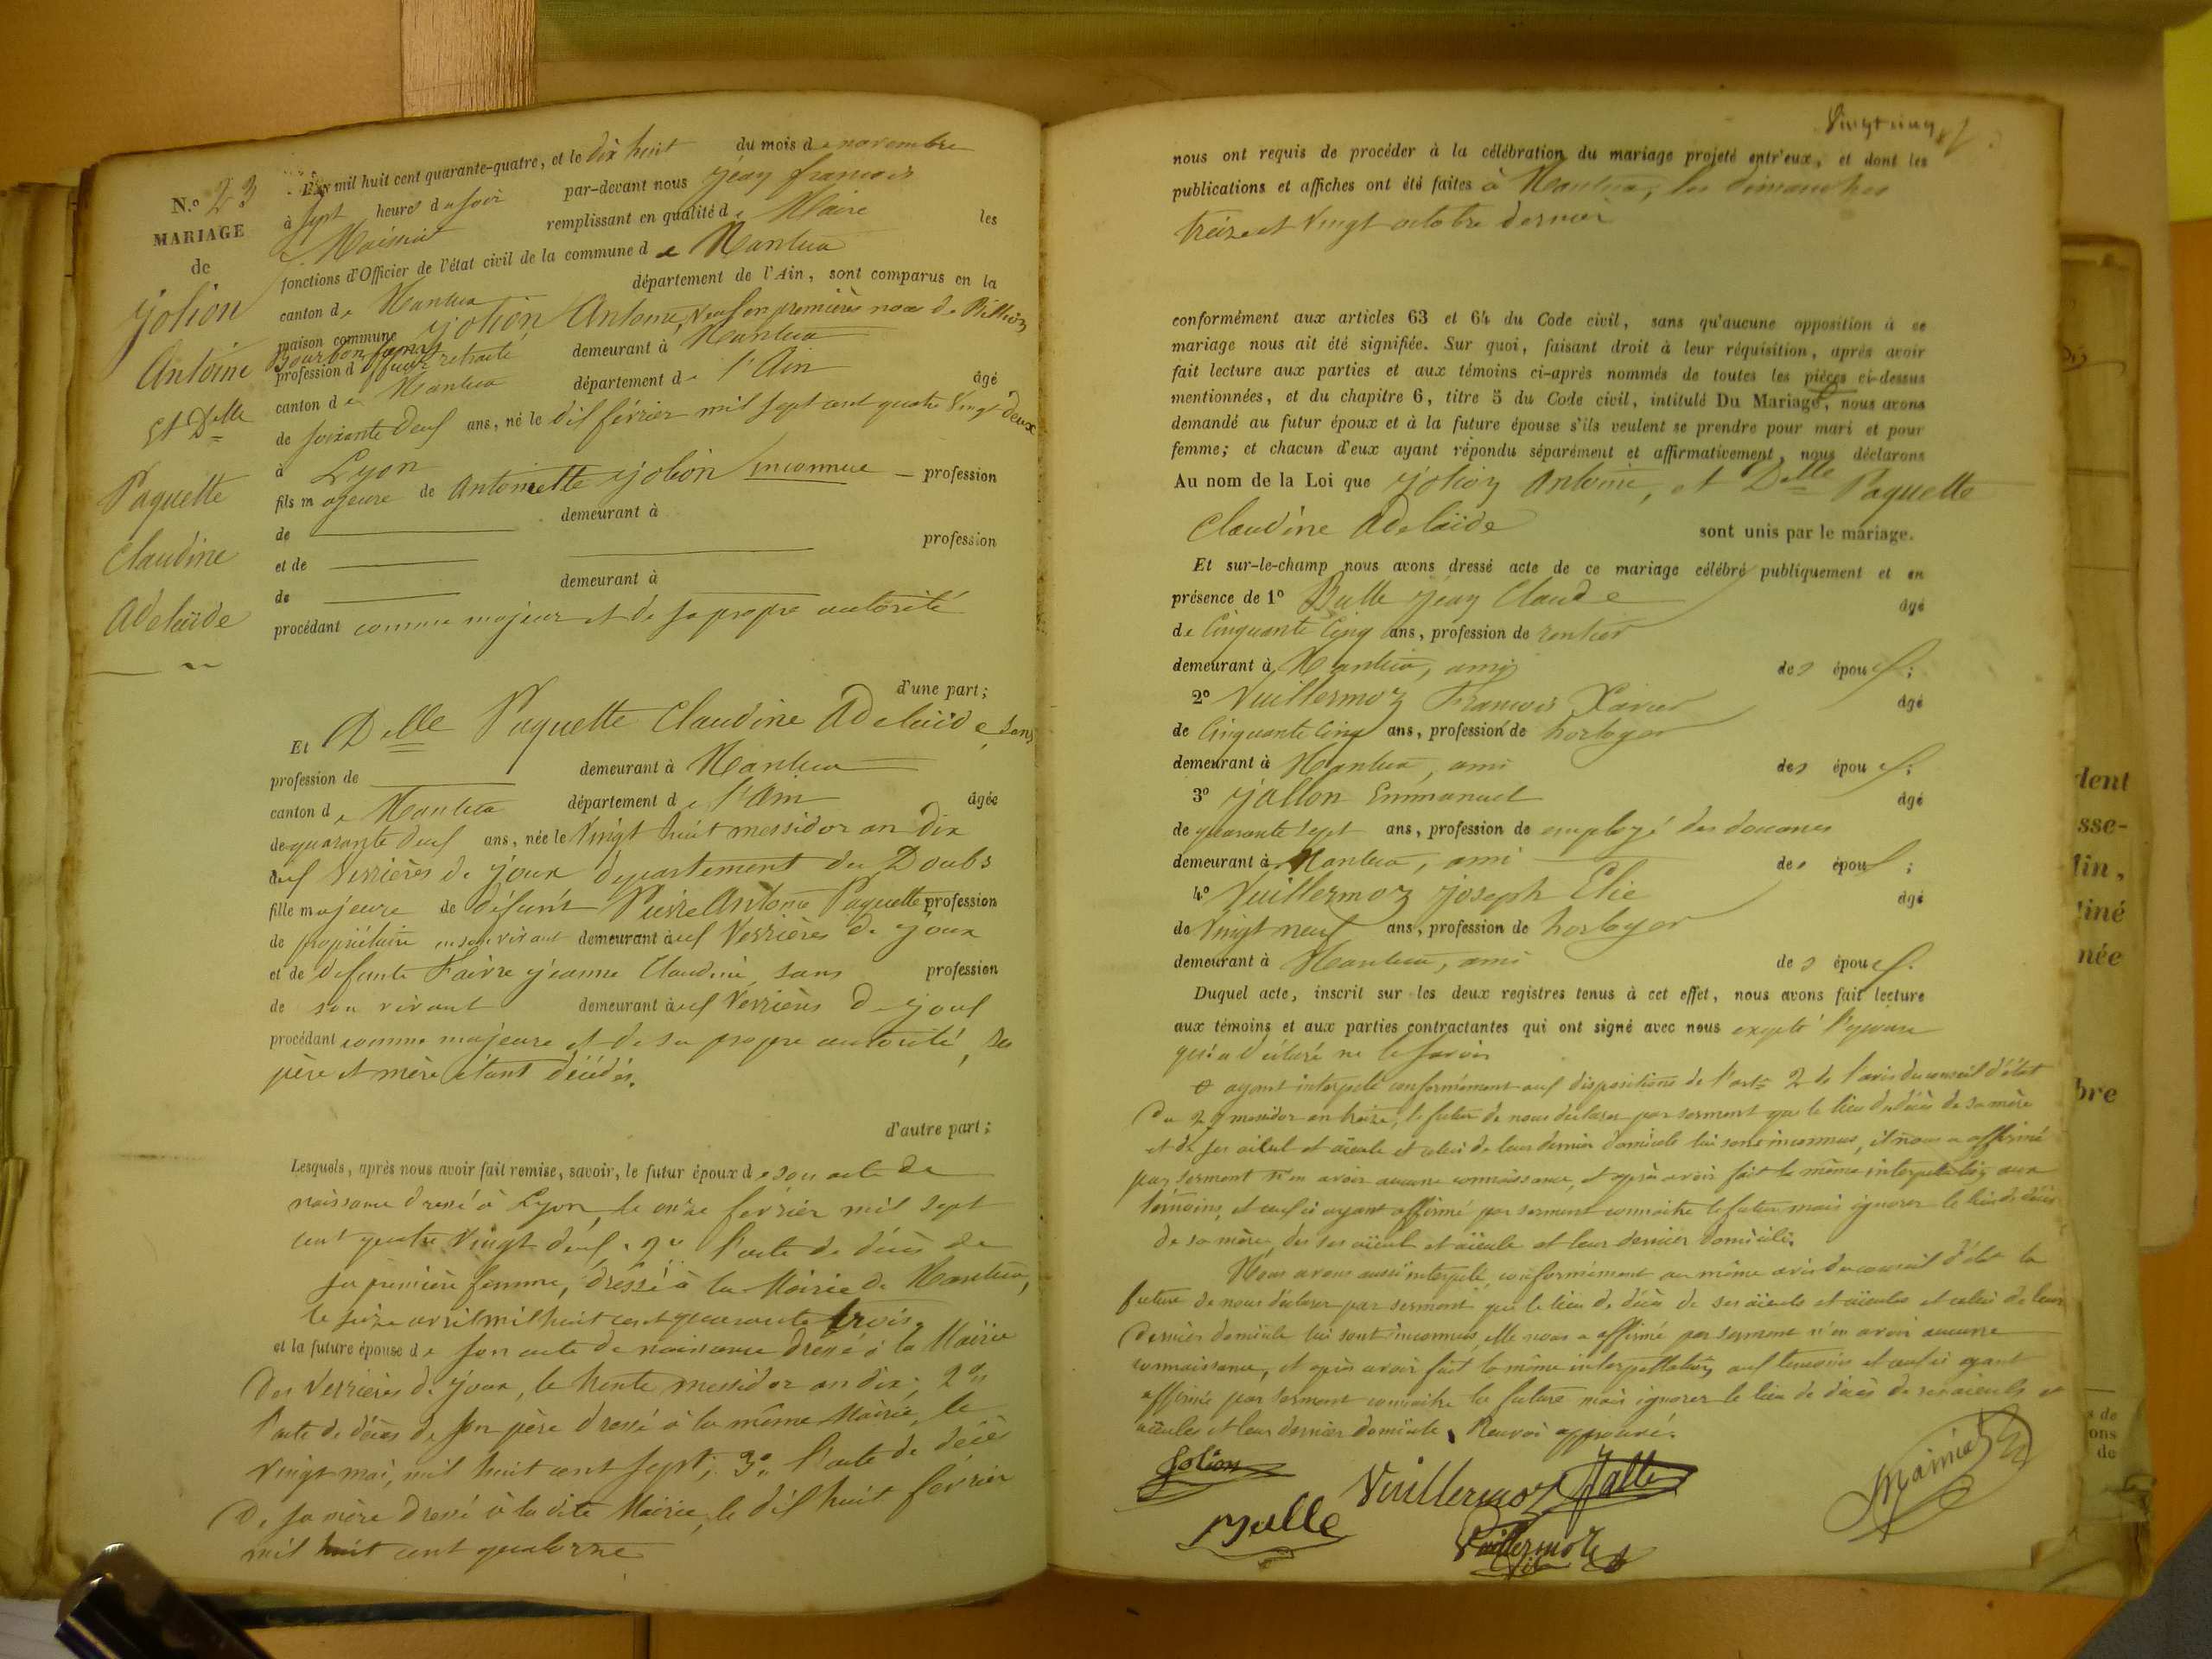 N.º 23
MARIAGE
de
Jolion
Antoine
Et Delle
Paquette
Claudine
Adelaïde
L'an mil huit cent quarante-quatre, et le dix huit du mois de novembre
à sept heures du soir par-devant nous Jean françois
Maissiat remplissant en qualité de Maire les
fonctions d'Officier de l'état civil de la commune de Nantua
canton de Nantua département de l'Ain, sont comparus en la
maison commune Jolion Antoine, veuf en premières noces de
Bourbon fanny
profession d' officier retraité demeurant à Nantua
canton de Nantua département de l'Ain âgé
de soixante deux ans, né le dix février mil sept cent quatre vingt deux
à Lyon
fils majeure de Antoinette Jolion inconnue profession
de demeurant à
et de profession
de demeurant à
procédant comme majeur et de sa propre autorité
d'une part;
Et Delle Paquette Claudine Adelaïde, sans
profession de demeurant à Nantua
canton de Nantua département de l'Ain âgée
de quarante deux ans, née le vingt huit messidor an dix
aux Verrières de joux département du Doubs
fille majeure de défunt Pierre Antoine Paquette profession
de propriétaire en son vivant demeurant aux Verrières de joux
et de défunte Faivre jeanne Claudine, sans profession
de son vivant demeurant aux Verrières de joux
procédant comme majeure et de sa propre autorité, ses
père et mère étant décédés.
d'autre part;
Lesquels, après nous avoir fait remise, savoir, le futur époux de son acte de
naissance dressé à Lyon, le onze février mil sept
cent quatre vingt deux. 2º l'acte de décès de
sa première femme, dressé à la Mairie de Nantua,
le seize avril mil huit cent quarante trois.
et la future épouse de son acte de naissance dressé à la Mairie
des Verrières de joux, le trente messidor an dix; 2º
l'acte de décès de son père dressé à la même Mairie, le
vingt mai, mil huit cent sept; 3º l'acte de décès
de sa mère dressé à la dite Mairie, le dix huit février
mil huit cent quatorze
Vingt cinq
nous ont requis de procéder à la célébration du mariage projeté entr'eux, et dont les
publications et affiches ont été faites à Nantua, les dimanches
treize et vingt octobre dernier
conformément aux articles 63 et 64 du Code civil, sans qu'aucune opposition à ce
mariage nous ait été signifiée. Sur quoi, faisant droit à leur réquisition, après avoir
fait lecture aux parties et aux témoins ci-après nommés de toutes les pièces ci-dessus
mentionnées, et du chapitre 6, titre 5 du Code civil, intitulé Du Mariage, nous avons
demandé au futur époux et à la future épouse s'ils veulent se prendre pour mari et pour
femme; et chacun d'eux ayant répondu séparément et affirmativement, nous déclarons
Au nom de la Loi que Jolion Antoine, et Delle Paquette
Claudine Adelaïde sont unis par le mariage.
Et sur-le-champ nous avons dressé acte de ce mariage célébré publiquement et en
présence de 1º Bulle Jean Claude âgé
de Cinquante Cinq ans, profession de rentier
demeurant à Nantua, ami des époux;
2º Vuillermoz François Xavier âgé
de Cinquante Cinq ans, profession de horloger
demeurant à Nantua, ami des époux;
3º Jallon Emmanuel âgé
de quarante sept ans, profession de employé des douanes
demeurant à Nantua, ami des époux;
4º Vuillermoz Joseph Elie âgé
de Vingt neuf ans, profession de horloger
demeurant à Nantua, ami des époux.
Duquel acte, inscrit sur les deux registres tenus à cet effet, nous avons fait lecture
aux témoins et aux parties contractantes qui ont signé avec nous excepté l'épouse
qui a déclaré ne le savoir
ayant interpellé conformément aux dispositions de l'art. 2 de l'avis du conseil d'état
du 27 messidor an treize, le futur de nous déclarer par serment que le lieu du décès de sa mère
et de ses aïeul et aïeule et celui de leur dernier domicile lui sont inconnus, il nous a affirmé
par serment n'en avoir aucune connaissance, et après avoir fait la même interpellation aux
témoins, et ceux ci ayant affirmé par serment connaître le futur mais ignorer le lieu de décès
de sa mère, de ses aïeul et aïeule et leur dernier domicile.
Nous avons aussi interpellé, conformément au même avis du conseil d'état la
future de nous déclarer par serment que le lieu de décès de ses aïeuls et aïeules et celui de leur
dernier domicile lui sont inconnus, elle nous a affirmé par serment n'en avoir aucune
connaissance, et après avoir fait la même interpellation aux témoins et ceux ci ayant
affirmé par serment connaître la future mais ignorer le lieu de décès de ses aïeuls et
aïeules et leur dernier domicile. Renvoi approuvé.
Jolion
Vuillermoz
Bulle
Vuillermoz
Maissiat
dent
sse-
lin,
tiné
née
bre
de
ons
de